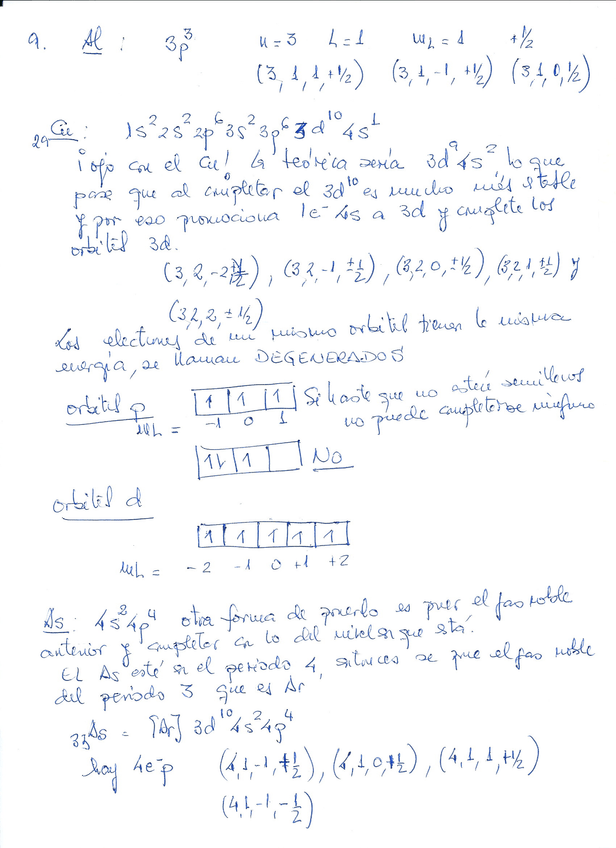 9. Al : 3p³ n=3 L=1 mL=1 +½
(3, 1, 1, +½) (3,1,-1, +½) (3,1,0,½)
29Cu : 1s² 2s² 2p⁶ 3s² 3p⁶ 3d¹⁰ 4s¹
¡ojo con el Cu! La teórica sería 3d⁹4s² lo que
pasa que al completar el 3d¹⁰ es mucho más estable
y por eso promociona 1e⁻ 4s a 3d y completa los
orbital 3d.
(3, 2, -2, ±½), (3,2,-1, ±½), (3,2,0,±½), (3,2,1,±½) y
(3,2,2, ±½)
Los electrones de un mismo orbital tienen la misma
energía, se llaman DEGENERADOS
orbital p 1 1 1 Si hasta que no estén semillenos
mL = -1 0 1 no puede completarse ninguno
1L 1 NO
orbital d
1 1 1 1 1
mL = -2 -1 0 +1 +2
As : 4s² 4p⁴ otra forma de ponerlo es poner el gas noble
anterior y completar con lo del nivel en que está.
EL As está en el periodo 4, entonces se pone el gas noble
del periodo 3 que es Ar
33As = [Ar] 3d¹⁰ 4s² 4p⁴
hay 4e⁻p (4,1,-1, +½), (4,1,0,+½), (4,1,1,+½)
(4,1,-1,-½)